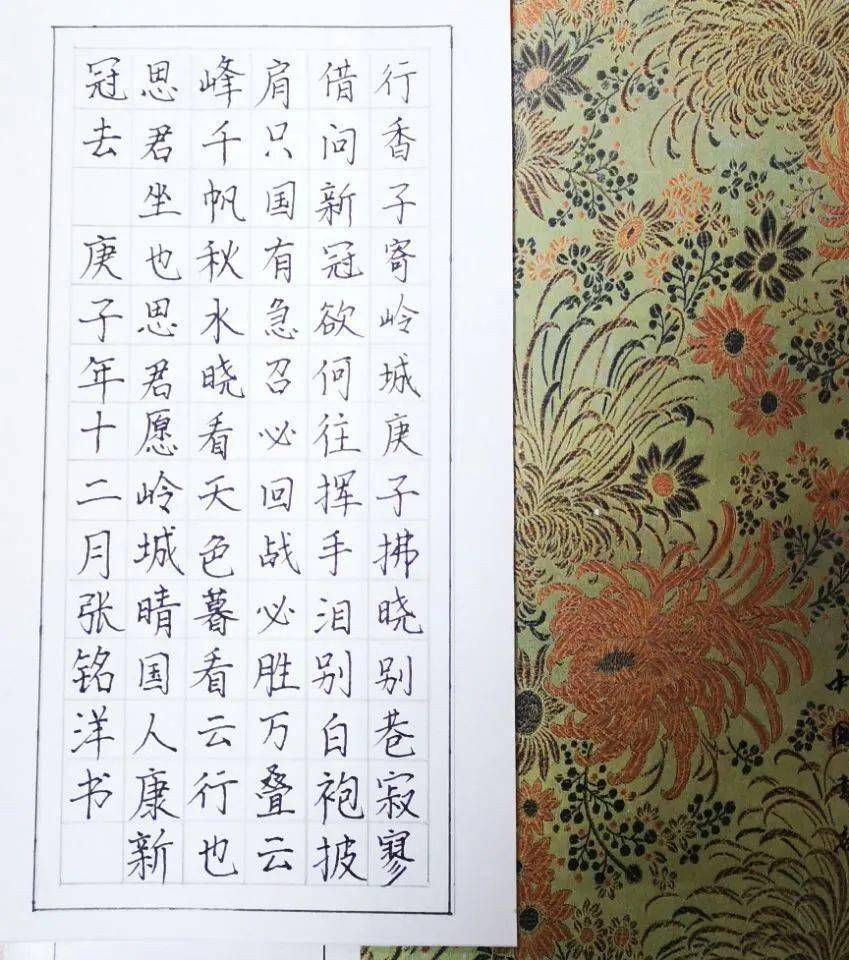 行香子寄岭城庚子拂晓别巷寂寥
借问新冠欲何往挥手泪别白袍披
肩只国有急召必回战必胜万叠云
峰千帆秋水晓看天色暮看云行也
思君坐也思君愿岭城晴国人康新
冠去 庚子年十二月张铭洋书
中国